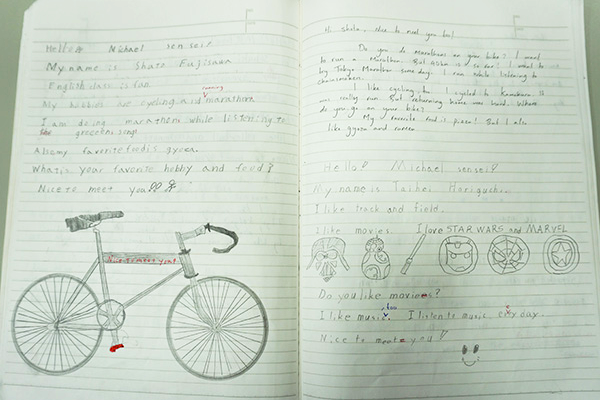 Hello Michael sensei
My name is Shota Fujisawa
English class is fun
My hobbies are cycling and running marathon
I am doing marathon while listening to
greeeen songs
Also my favorite food is gyoza.
What is your favorite hobby and food?
Nice to meet you!!
Nice to meet you!
Hi Shota, nice to meet you too!
Do you do marathons on your bike? I want
to run a Marathon. But it is so far! I want to
try Tokyo Marathon some day. I run while listening to
chainsmoker.
I like cycling too. I cycled to Kamakura. It
was really fun. But returning home was hard. Where
do you go on your bike?
My favorite food is pizza! But I also
like gyoza and ramen.
Hello! Michael sensei!
My name is Taihei Horiguchi.
I like track and field.
I like movies. I love STAR WARS and MARVEL
Do you like movies?
I like music. I listen to music. every day.
Nice to meet you!